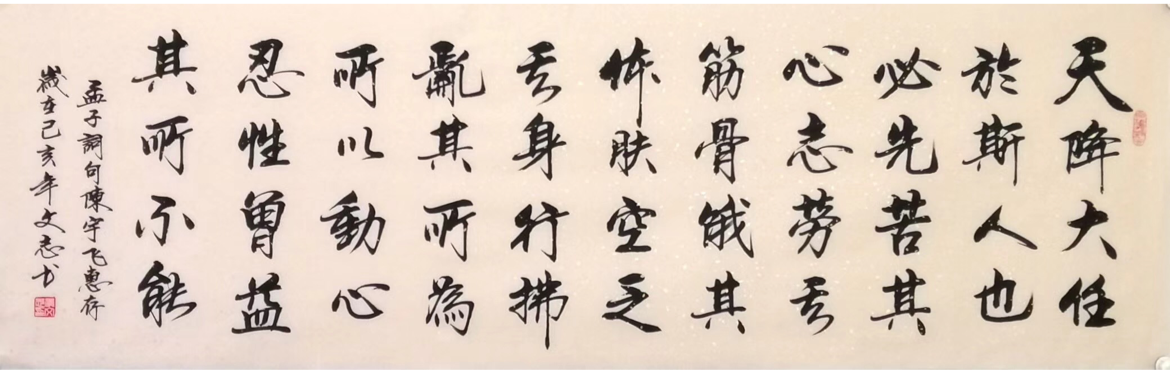 天降大任
於斯人也
必先苦其
心志劳亓
筋骨饿其
体肤空乏
亓身行拂
亂其所為
所以動心
忍性曾益
其所不能
孟子詞句陳宇飞惠存
歲在己亥年文志书